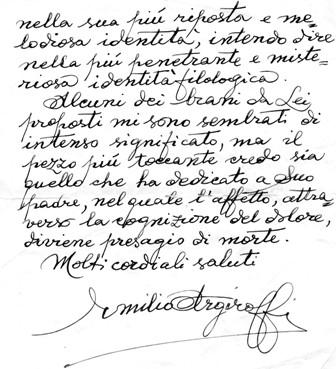 nella sua piú riposta e me-
lodiosa identità, intendo dire
nella piú penetrante e miste-
riosa identità filologica.
Alcuni dei brani da Lei
proposti mi sono sembrati di
intenso significato, ma il
pezzo piú toccante credo sia
quello che ha dedicato a Suo
padre, nel quale l'affetto, attra-
verso la cognizione del dolore,
diviene presagio di morte.
Molti cordiali saluti
Emilio Argiroffi